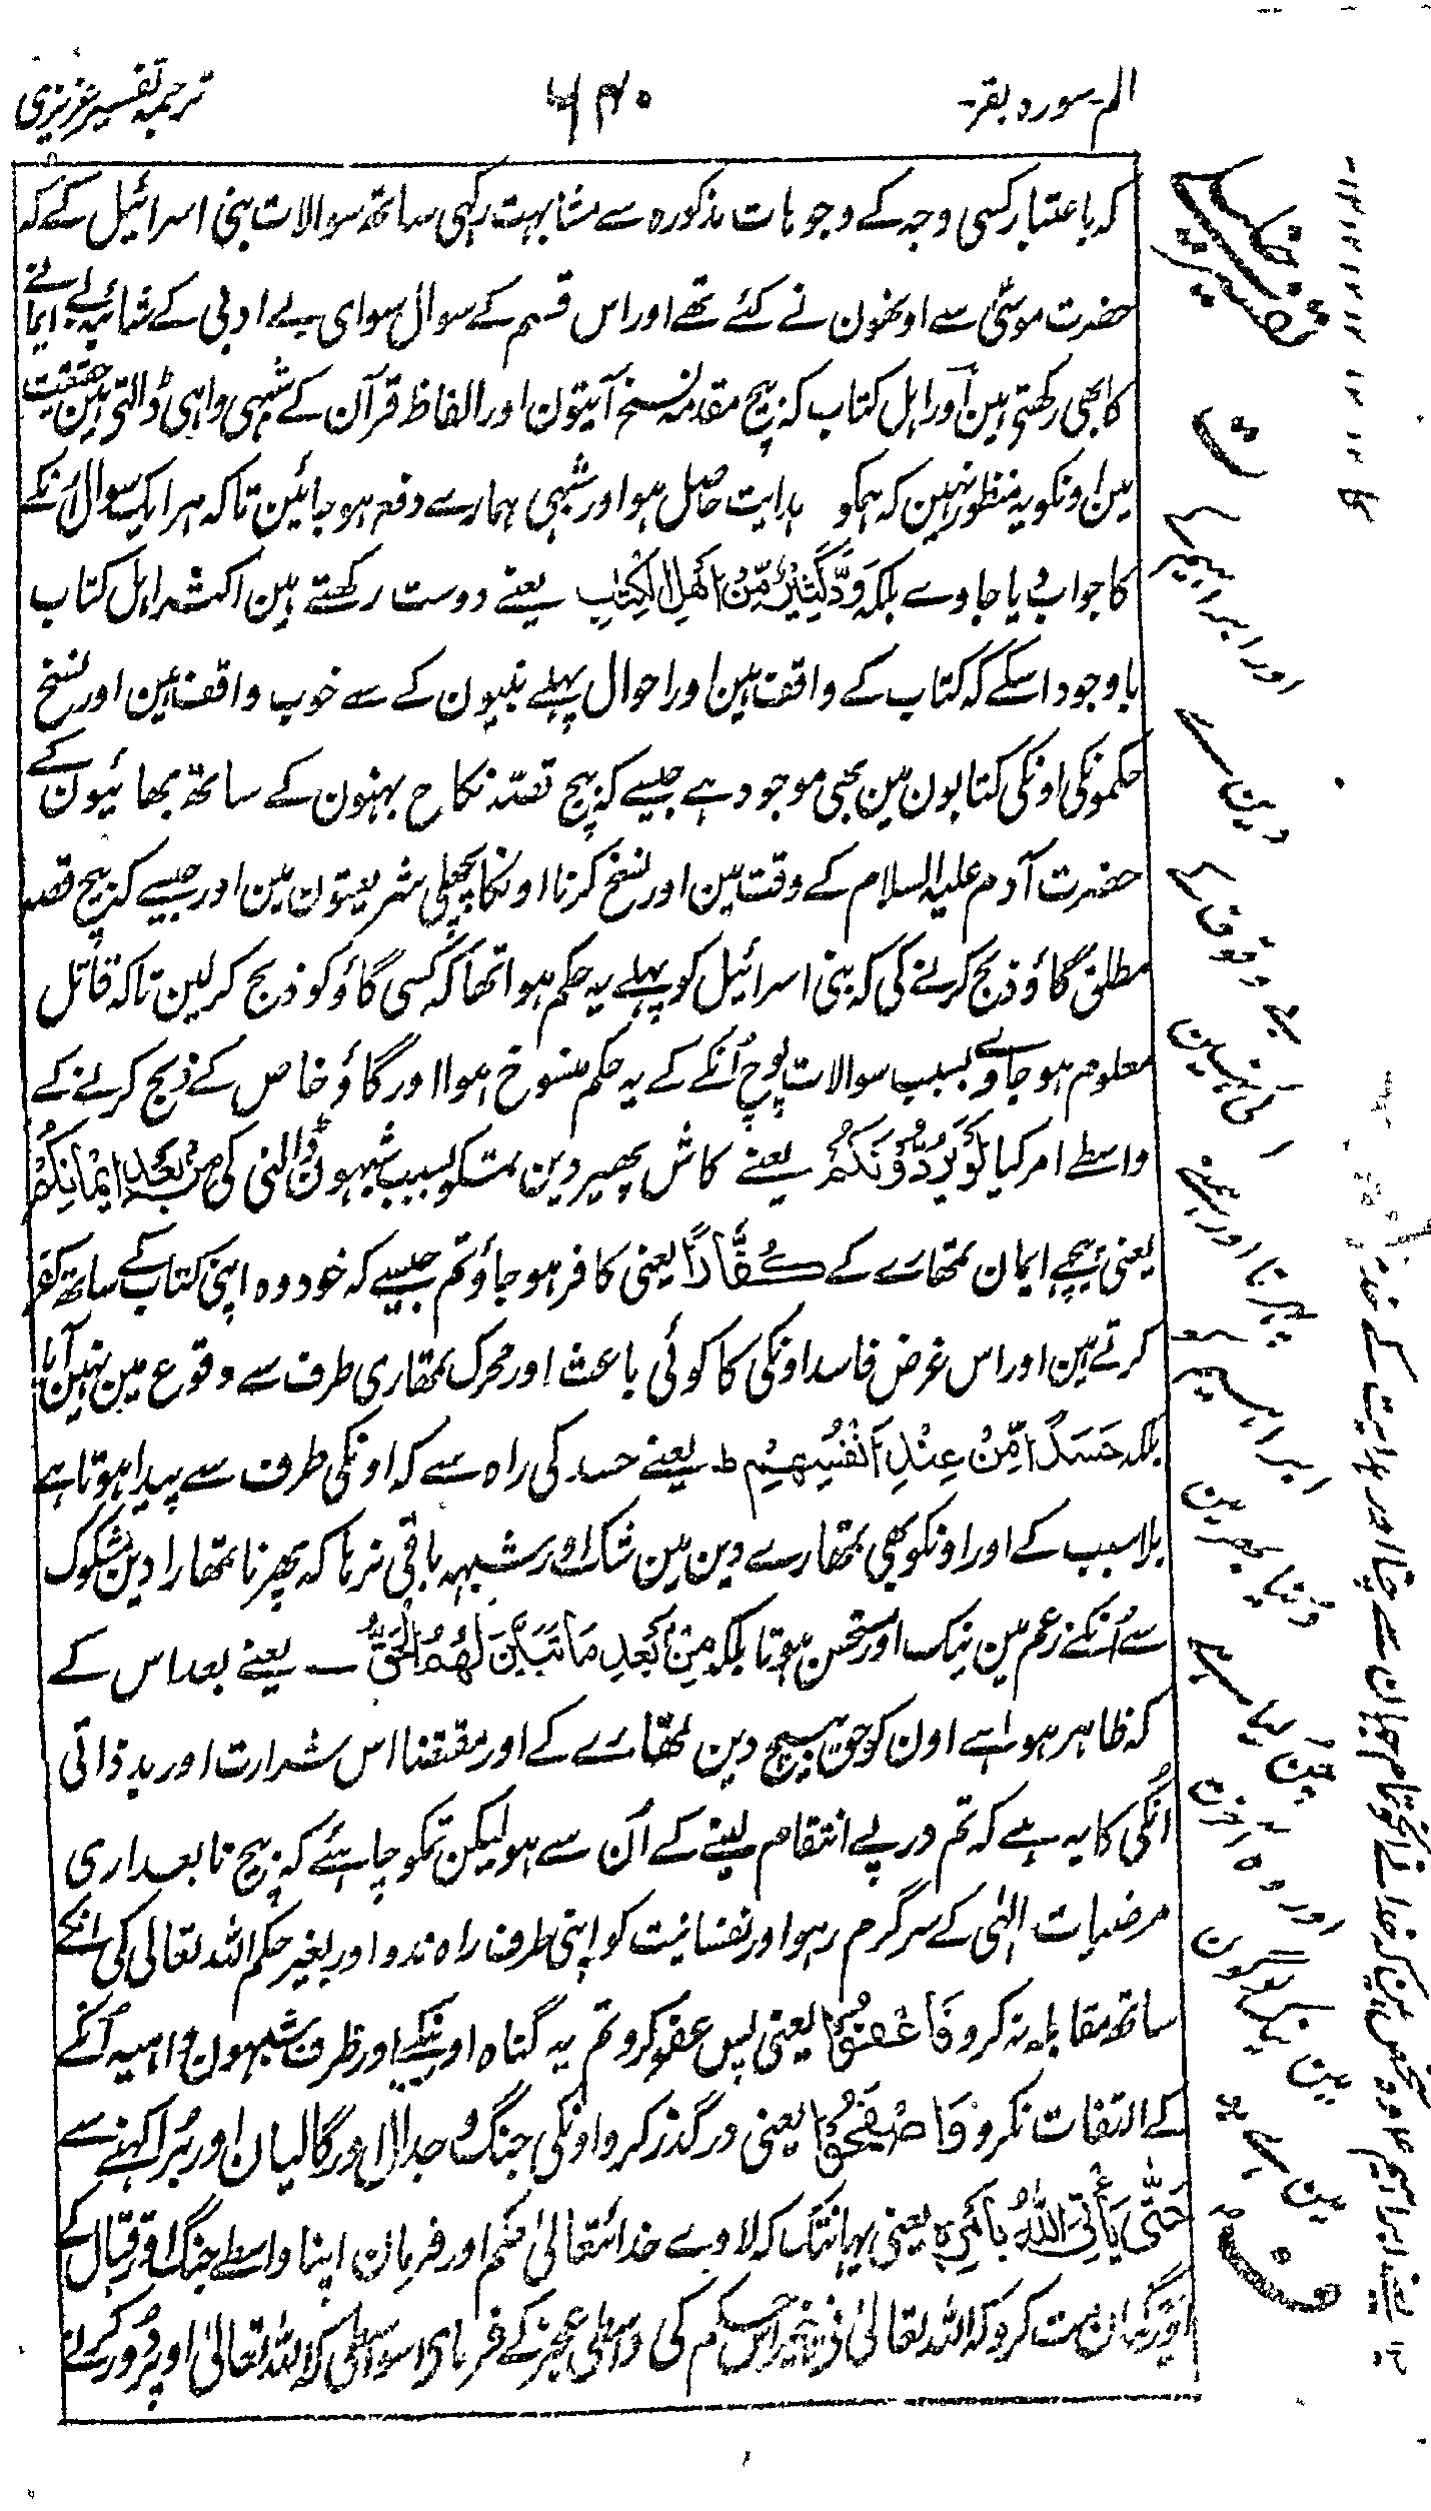 الم۔ سورہ بقر۔
۶۴۰
ترجمہ تفسیر عزیزی
کہ باعتبار کسی وجہ کے وجوہات مذکورہ سے مشابہت رکہی ساتھ سوالات بنی اسرائیل کے کہ
حضرت موسیٰ سے اونھون نے کئے تھے اور اس قسم کے سوال سوای بے ادبی کے شائبہ بے ایمانے
کا بھی رکھتی ہین اور اہل کتاب کہ بیچ مقدمہ نسخ آیتون اور الفاظ قرآن کے شبہی واہی ڈالتی ہین حقیقت
مین اونکو یہ منظور نہین کہ ہمکو ہدایت حاصل ہو اور شبہی ہمارے دفع ہو جائین تاکہ ہر ایک سوال اُنکے
کا جواب پایا جاوے بلکہ وَدَّ كَثِيْرٌ مِّنْ اَهْلِ الْكِتٰبِ یعنے دوست رکھتے ہین اکثر اہل کتاب
باوجود اسکے کہ کتاب کے واقف ہین اور احوال پہلے نبیون کے سے خوب واقف ہین اور نسخ
حکمونکی اونکی کتابون مین بھی موجود ہے جیسے کہ بیچ قصّہ نکاح بہنون کے ساتھ بھائیون کے
حضرت آدم علیہ السلام کے وقت مین اور نسخ کرنا اونکا پچھلی شریعتون مین اور جیسے کہ بیچ قصہ
مطلق گاؤ ذبح کرنے کی کہ بنی اسرائیل کو پہلے یہ حکم ہوا تھا کہ کسی گاؤ کو ذبح کر لین تاکہ قاتل
معلوم ہو جاوے بسبب سوالات پوچ اُنکے کے یہ حکم منسوخ ہوا اور گاؤ خاص کے ذبح کرنے کے
واسطے امر کیا لَوْ يَرُدُّوْنَكُمْ یعنے کاش پھیر دین تمکو بسبب شبہون ڈالنی کی مِنْ بَعْدِ اِيْمَانِكُمْ
یعنی پیچھے ایمان تمھارے کے كُفَّارًا یعنی کافر ہو جاؤ تم جیسے کہ خود وہ اپنی کتاب کے ساتھ کفر
کرتے ہین اور اس غرض فاسد اونکی کا کوئی باعث اور محرک تمھاری طرف سے وقوع مین نہین آیا
بلکہ حَسَدًا مِّنْ عِنْدِ اَنْفُسِهِمْ ط یعنے حسد کی راہ سے کہ اونکی طرف سے پیدا ہوتا ہے
بلا سبب کے اور اونکو بھی تمھارے دین مین شک اور شبہہ باقی نرہا کہ پھرنا تمھارا دین مشکوک
سے اُنکے زعم مین نیک اور مستحسن ہوتا بلکہ مِنْ بَعْدِ مَا تَبَيَّنَ لَهُمُ الْحَقُّ یعنے بعد اس کے
کہ ظاہر ہوا ہے اون کو حق بیچ دین تمھارے کے اور مقتضا اس شرارت اور بد ذاتی
اُنکی کا یہ ہے کہ تم درپے انتقام لینے کے اُن سے ہو لیکن تمکو چاہئے کہ بیچ تابعداری
مرضیات الہٰی کے سرگرم رہو اور نفسانیت کو اپنی طرف راہ ندو اور بغیر حکم اللہ تعالی کی انکے
ساتھ مقابلہ نہ کرو فَاعْفُوْا یعنی پس عفو کرو تم یہ گناہ اونکے اور طرف شبہون واہیہ اُنکے
کے التفات نکرو وَاصْفَحُوْا یعنی درگذر کرو اونکی جنگ و جدال اور گالیان اور بُرا کہنے سے
حَتّٰى يَاْتِيَ اللّٰهُ بِاَمْرِهٖ یعنی یہانتک کہ لاوے خدائتعالیٰ حکم اور فرمان اپنا واسطے جنگ اور قتال کے
اور گمان مت کرو کہ اللہ تعالیٰ نے تاخیر اس حکم کی واسطی عجز کے فرمائی اسواسطی کہ اللہ تعالیٰ اوپر دور کرنے
اور ابراہیم کے
دین سے